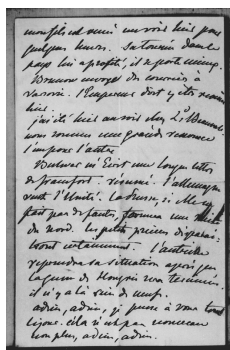 mon fils est venu me voir hier pour
quelques heures. Sa tournée dans le
pays lui a profité, il se porte mieux.
envoyé des courriers à
Varsovie. l'Empereur doit y être
hier.
j'ai été hier au soir chez
nous sommes une grande
l'un pour l'autre.
m'écrit une longue lettre
de francfort. résumé. l'allemagne
veut l'Unité. La Prusse, si elle ne
fait pas de fautes, formera une
du nord. les petits princes disparai-
tront certainement. l'autriche
reprendra sa situation après que
la guerre de Hongrie sera terminée.
il n'y a là rien de neuf.
adieu, adieu, je pense à vous tout
le jour. cela n'est pas nouveau
non plus, adieu, adieu.